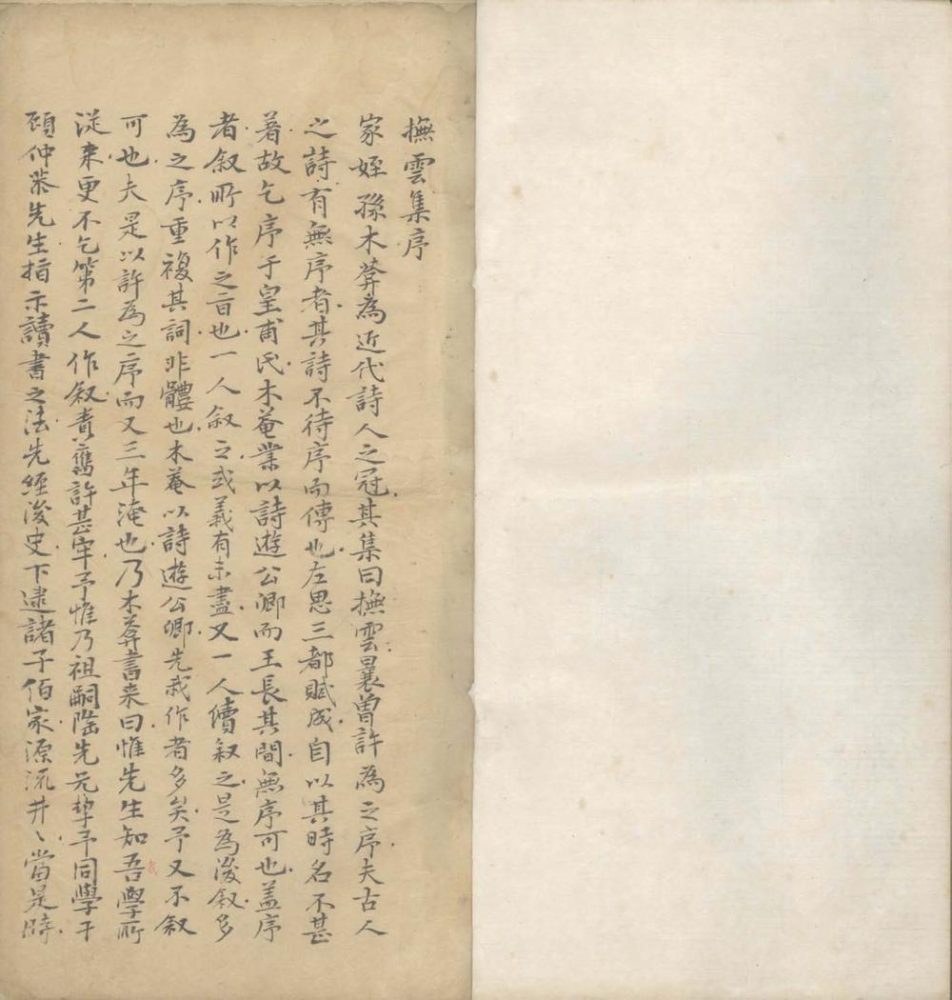 撫雲集序
家姪孫木菴為近代詩人之冠其集曰撫雲曩曽許為之序夫古人
之詩有無序者其詩不待序而傳也左思三都賦成自以其時名不甚
著故乞序于皇甫氏木菴業以詩遊公卿而王長其間無序可也盖序
者叙所以作之旨也一人叙之或義有未盡又一人續叙之是為後叙多
為之序重複其詞非體也木菴以詩遊公卿先我作者多矣予又不叙
可也夫是以許為之序而又三年淹也乃木菴書来曰惟先生知吾學所
從来更不乞第二人作叙責舊許甚牢予惟乃祖嗣隆先兄挈予同學于
顧仲恭先生指示讀書之法先經後史下逮諸子佰家源流井〻當是時